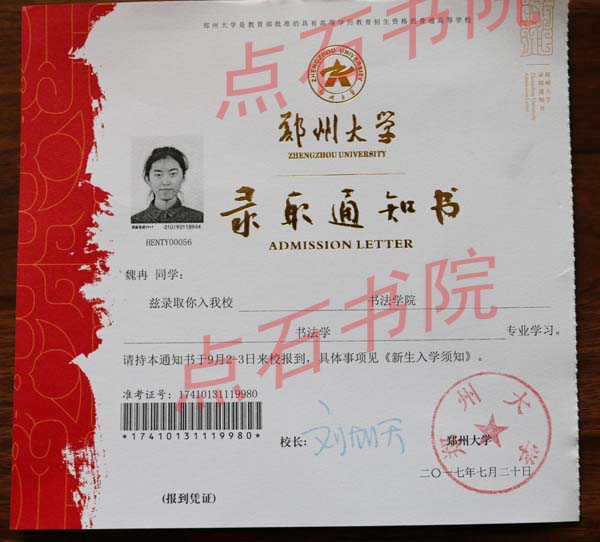 郑州大学是教育部批准的具有高等学历教育招生资格的普通高等学校
点石书院
ZHENGZHOU UNIVERSITY
郑州大学
郑州大学
ZHENGZHOU UNIVERSITY
郑州大学
录取通知书
录取通知书
ADMISSION LETTER
010193118944
HENTY00056
魏冉 同学:
点石书院
兹录取你入我校 书法学院
书法学 专业学习。
请持本通知书于9月2-3日来校报到,具体事项见《新生入学须知》。
点石书院
准考证号: 17410131119980
*17410131119980*
校长:
郑州大学
郑州大学
二〇一七年七月二十日
(报到凭证)